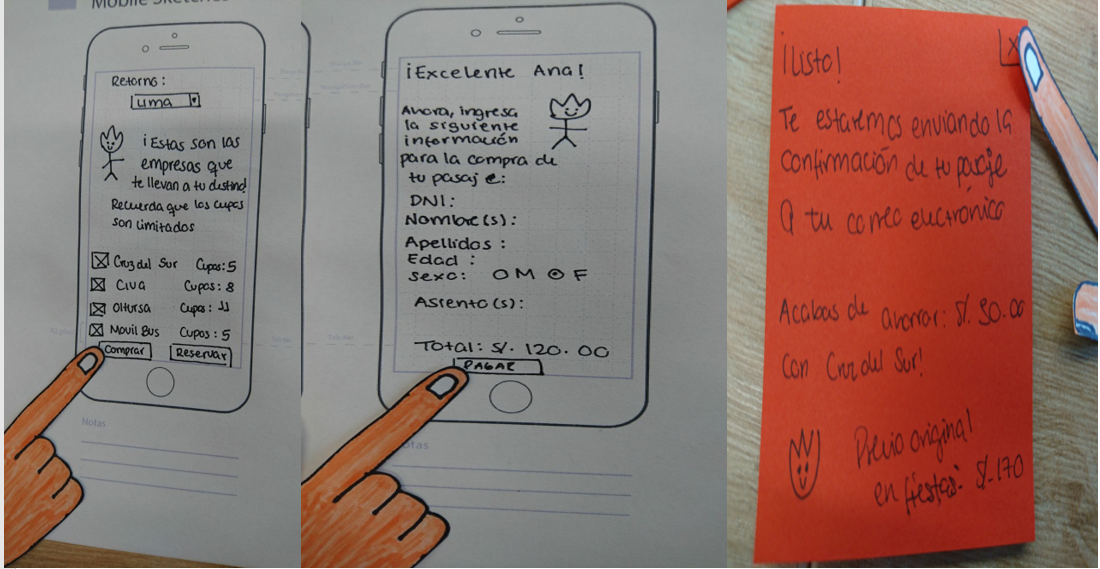 Mobile Sketches
Retorno:
Lima
¡Estas son las
empresas que
te llevan a tu destino!
Recuerda que los cupos
son limitados
Cruz del Sur Cupos: 5
Civa Cupos: 8
Oltursa Cupos: 11
Movil Bus Cupos: 5
Comprar Reservar
Notas
¡Excelente Ana!
Ahora, ingresa
la siguiente
información
para la compra de
tu pasaje:
DNI:
Nombre(s):
Apellidos:
Edad:
sexo: M F
Asiento(s):
Total: S/. 120.00
PAGAR
Notas
¡Listo!
X
Te estaremos enviando la
confirmación de tu pasaje
a tu correo electrónico
Acabas de ahorrar: S/. 50.00
con Cruz del Sur!
Precio original
en fiestas: S/. 170